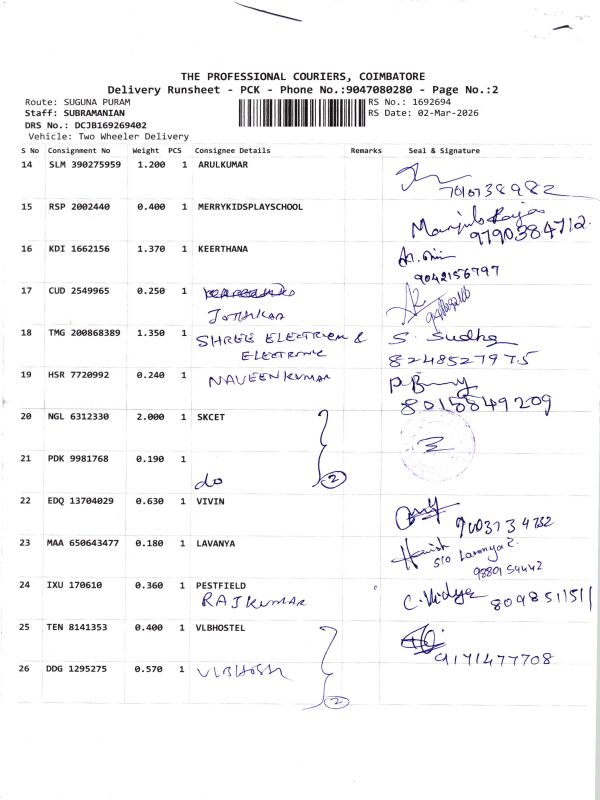 THE PROFESSIONAL COURIERS, COIMBATORE
Delivery Runsheet - PCK - Phone No.:9047080280 - Page No.:2
Route: SUGUNA PURAM RS No.: 1692694
Staff: SUBRAMANIAN RS Date: 02-Mar-2026
DRS No.: DCJB169269402
Vehicle: Two Wheeler Delivery
S No Consignment No Weight PCS Consignee Details Remarks Seal & Signature
14 SLM 390275959 1.200 1 ARULKUMAR
7010738982
15 RSP 2002440 0.400 1 MERRYKIDSPLAYSCHOOL
9790384712
16 KDI 1662156 1.370 1 KEERTHANA
9042156797
17 CUD 2549965 0.250 1
18 TMG 200868389 1.350 1 SHREE ELECTRICM & S. Sudha
ELECTRONIC 8248527975
19 HSR 7720992 0.240 1 NAVEENKUMAR
8015549209
20 NGL 6312330 2.000 1 SKCET
21 PDK 9981768 0.190 1
do 2
22 EDQ 13704029 0.630 1 VIVIN
23 MAA 650643477 0.180 1 LAVANYA Harish
S/O Lavanya
24 IXU 170610 0.360 1 PESTFIELD
RAJKUMAR C. Vidya 8098511511
25 TEN 8141353 0.400 1 VLBHOSTEL
9171477708
26 DDG 1295275 0.570 1
2